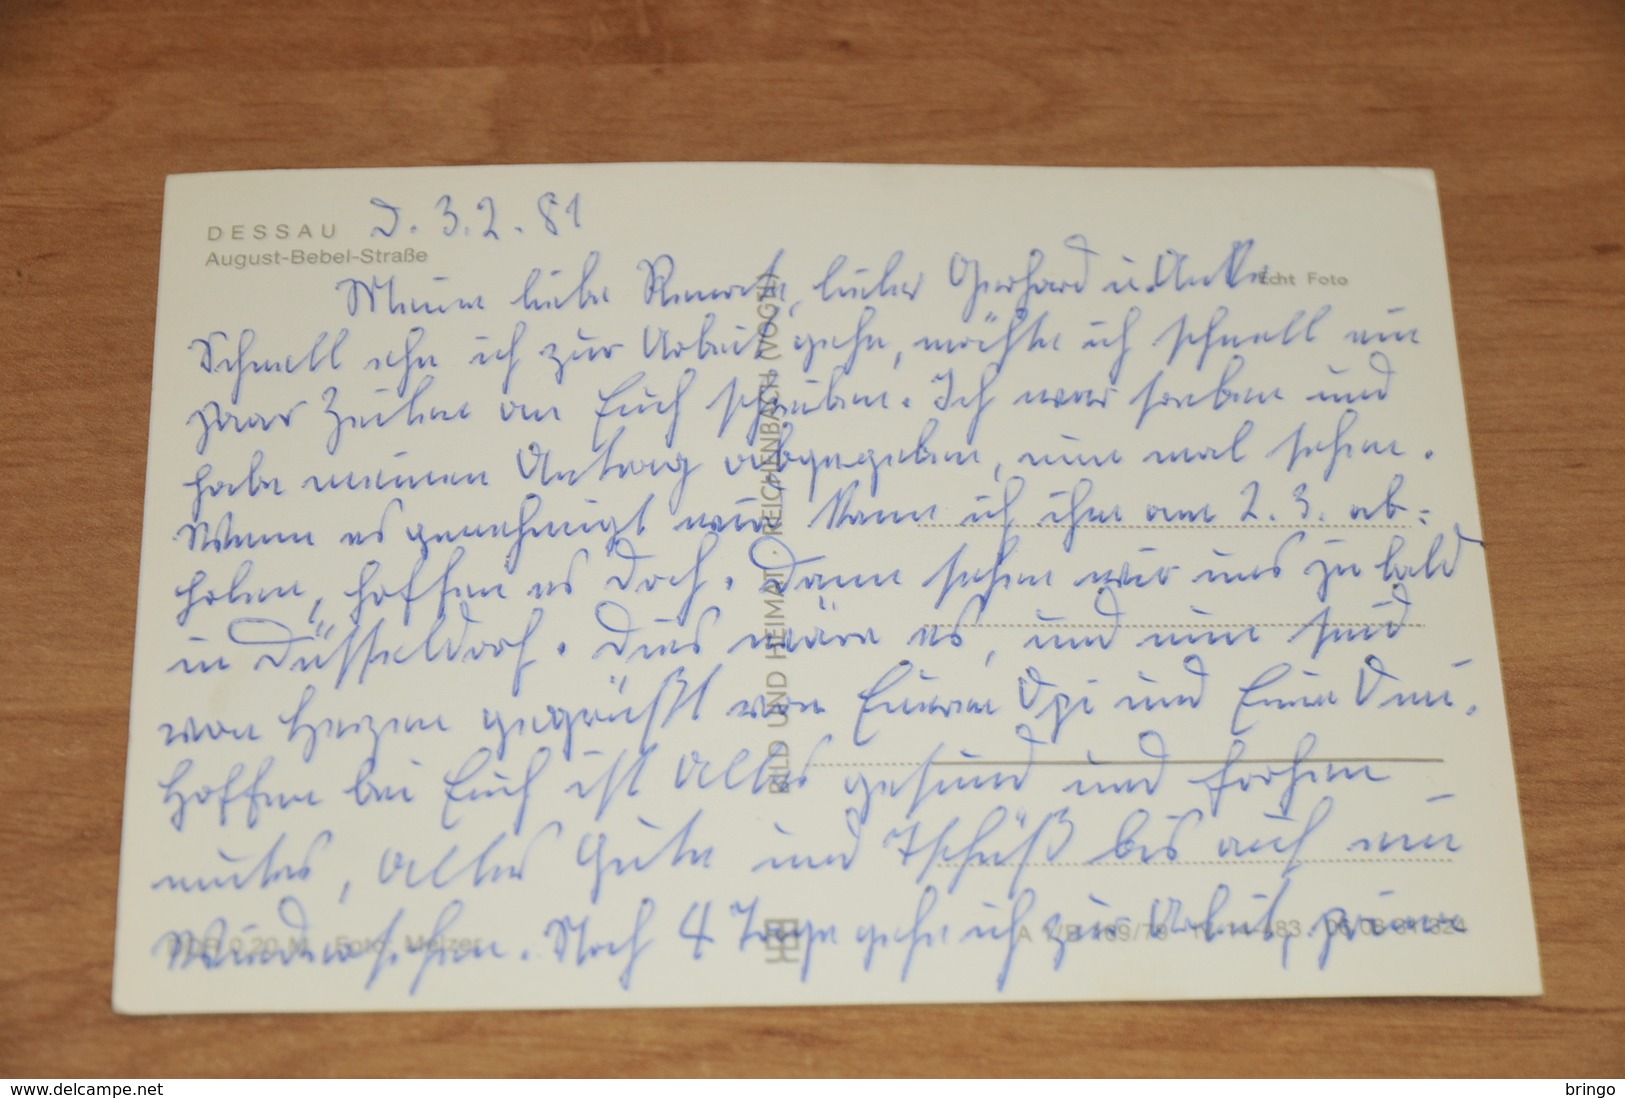 DESSAU D. 3.2.81
August-Bebel-Straße
Echt Foto
Meine liebe Renate, lieber Gerhard u. Anke
Schnell ehe ich zur Arbeit gehe, möchte ich schnell ein
paar Zeilen an Euch schreiben. Ich war soeben und
habe meinen Antrag abgegeben, nun mal sehen.
Wenn es genehmigt wird kann ich ihn am 2.3. ab-
holen, hoffen es doch. Dann sehen wir uns ja bald
in Düsseldorf. Dies wäre es, und nun seid
von Herzen gegrüßt von Eurem Opi und Eurer Omi.
Hoffen bei Euch ist alles gesund und frohen
mutes, alles Gute und Tschüß bis auf ein
Wiedersehen. Noch 4 Tage gehe ich zur Arbeit, prima
BILD UND HEIMAT · REICHENBACH (VOGTL)
0,20 M Foto: Melzer
A 1/B 169/79
www.delcampe.net
bringo